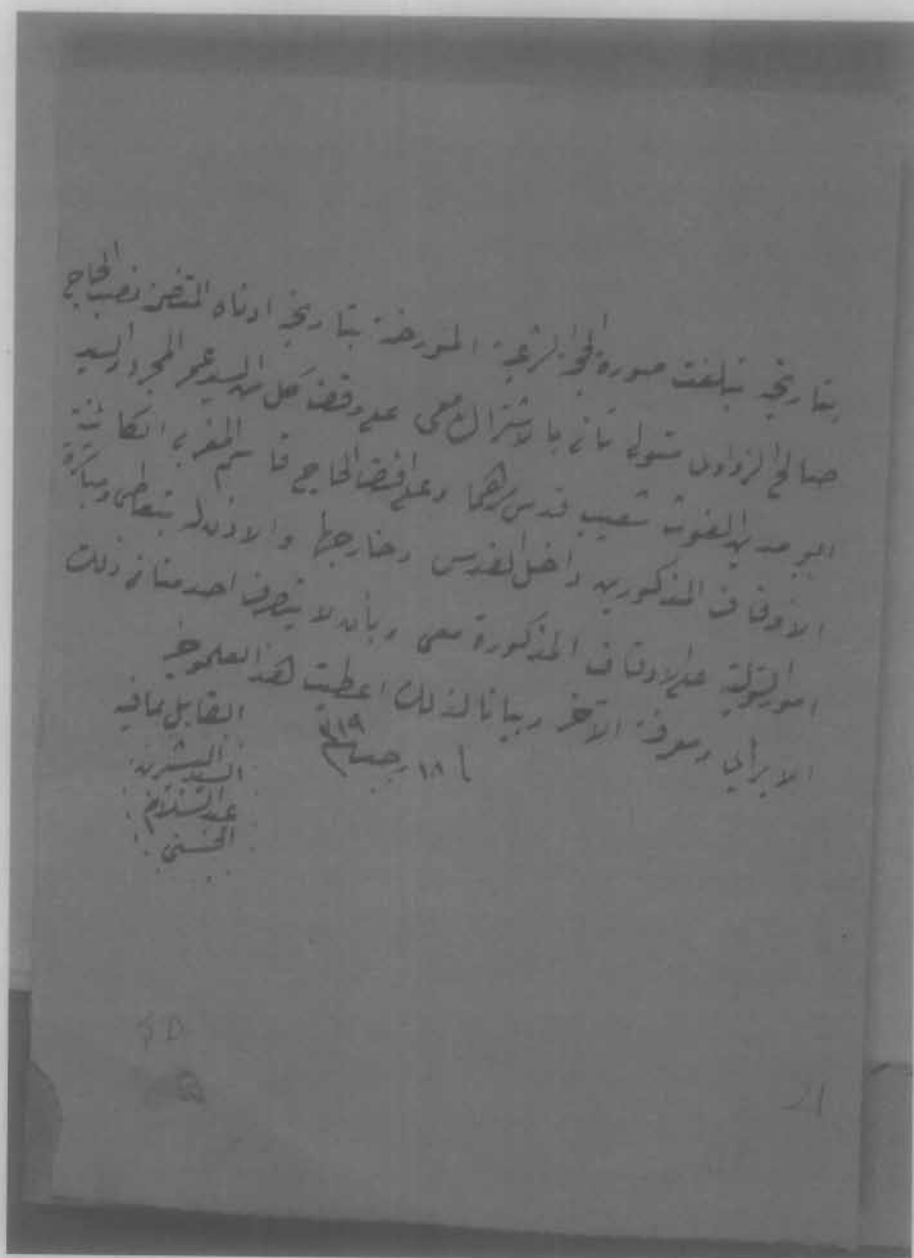 بتاريخه تبلغت صورة الحجة الشرعية المورخة بتاريخ ادناه المتضمن نصب الحاج
صالح الزواوى متولى ثانى بالاشتراك معى على وقف كل من السيد عمر المجرد والسيد
ابو مدين الغوث شعيب قدس سرهما وعلى وقف الحاج قاسم المغربى الكائنة
الاوقاف المذكورين داخل القدس وخارجها والاذن له بتعاطى ومباشرة
امور التولية على الاوقاف المذكورة معى وبأن لا يتصرف احد منا فى ذلك
الا برأي ومعرفة الآخر وبيانا لذلك اعطيت هذا العلموخبر
فى ١٨ رجب سنة ٣١٩
القابل بمافيه
السيد البشير بن
عبد السلام
الحسنى
21